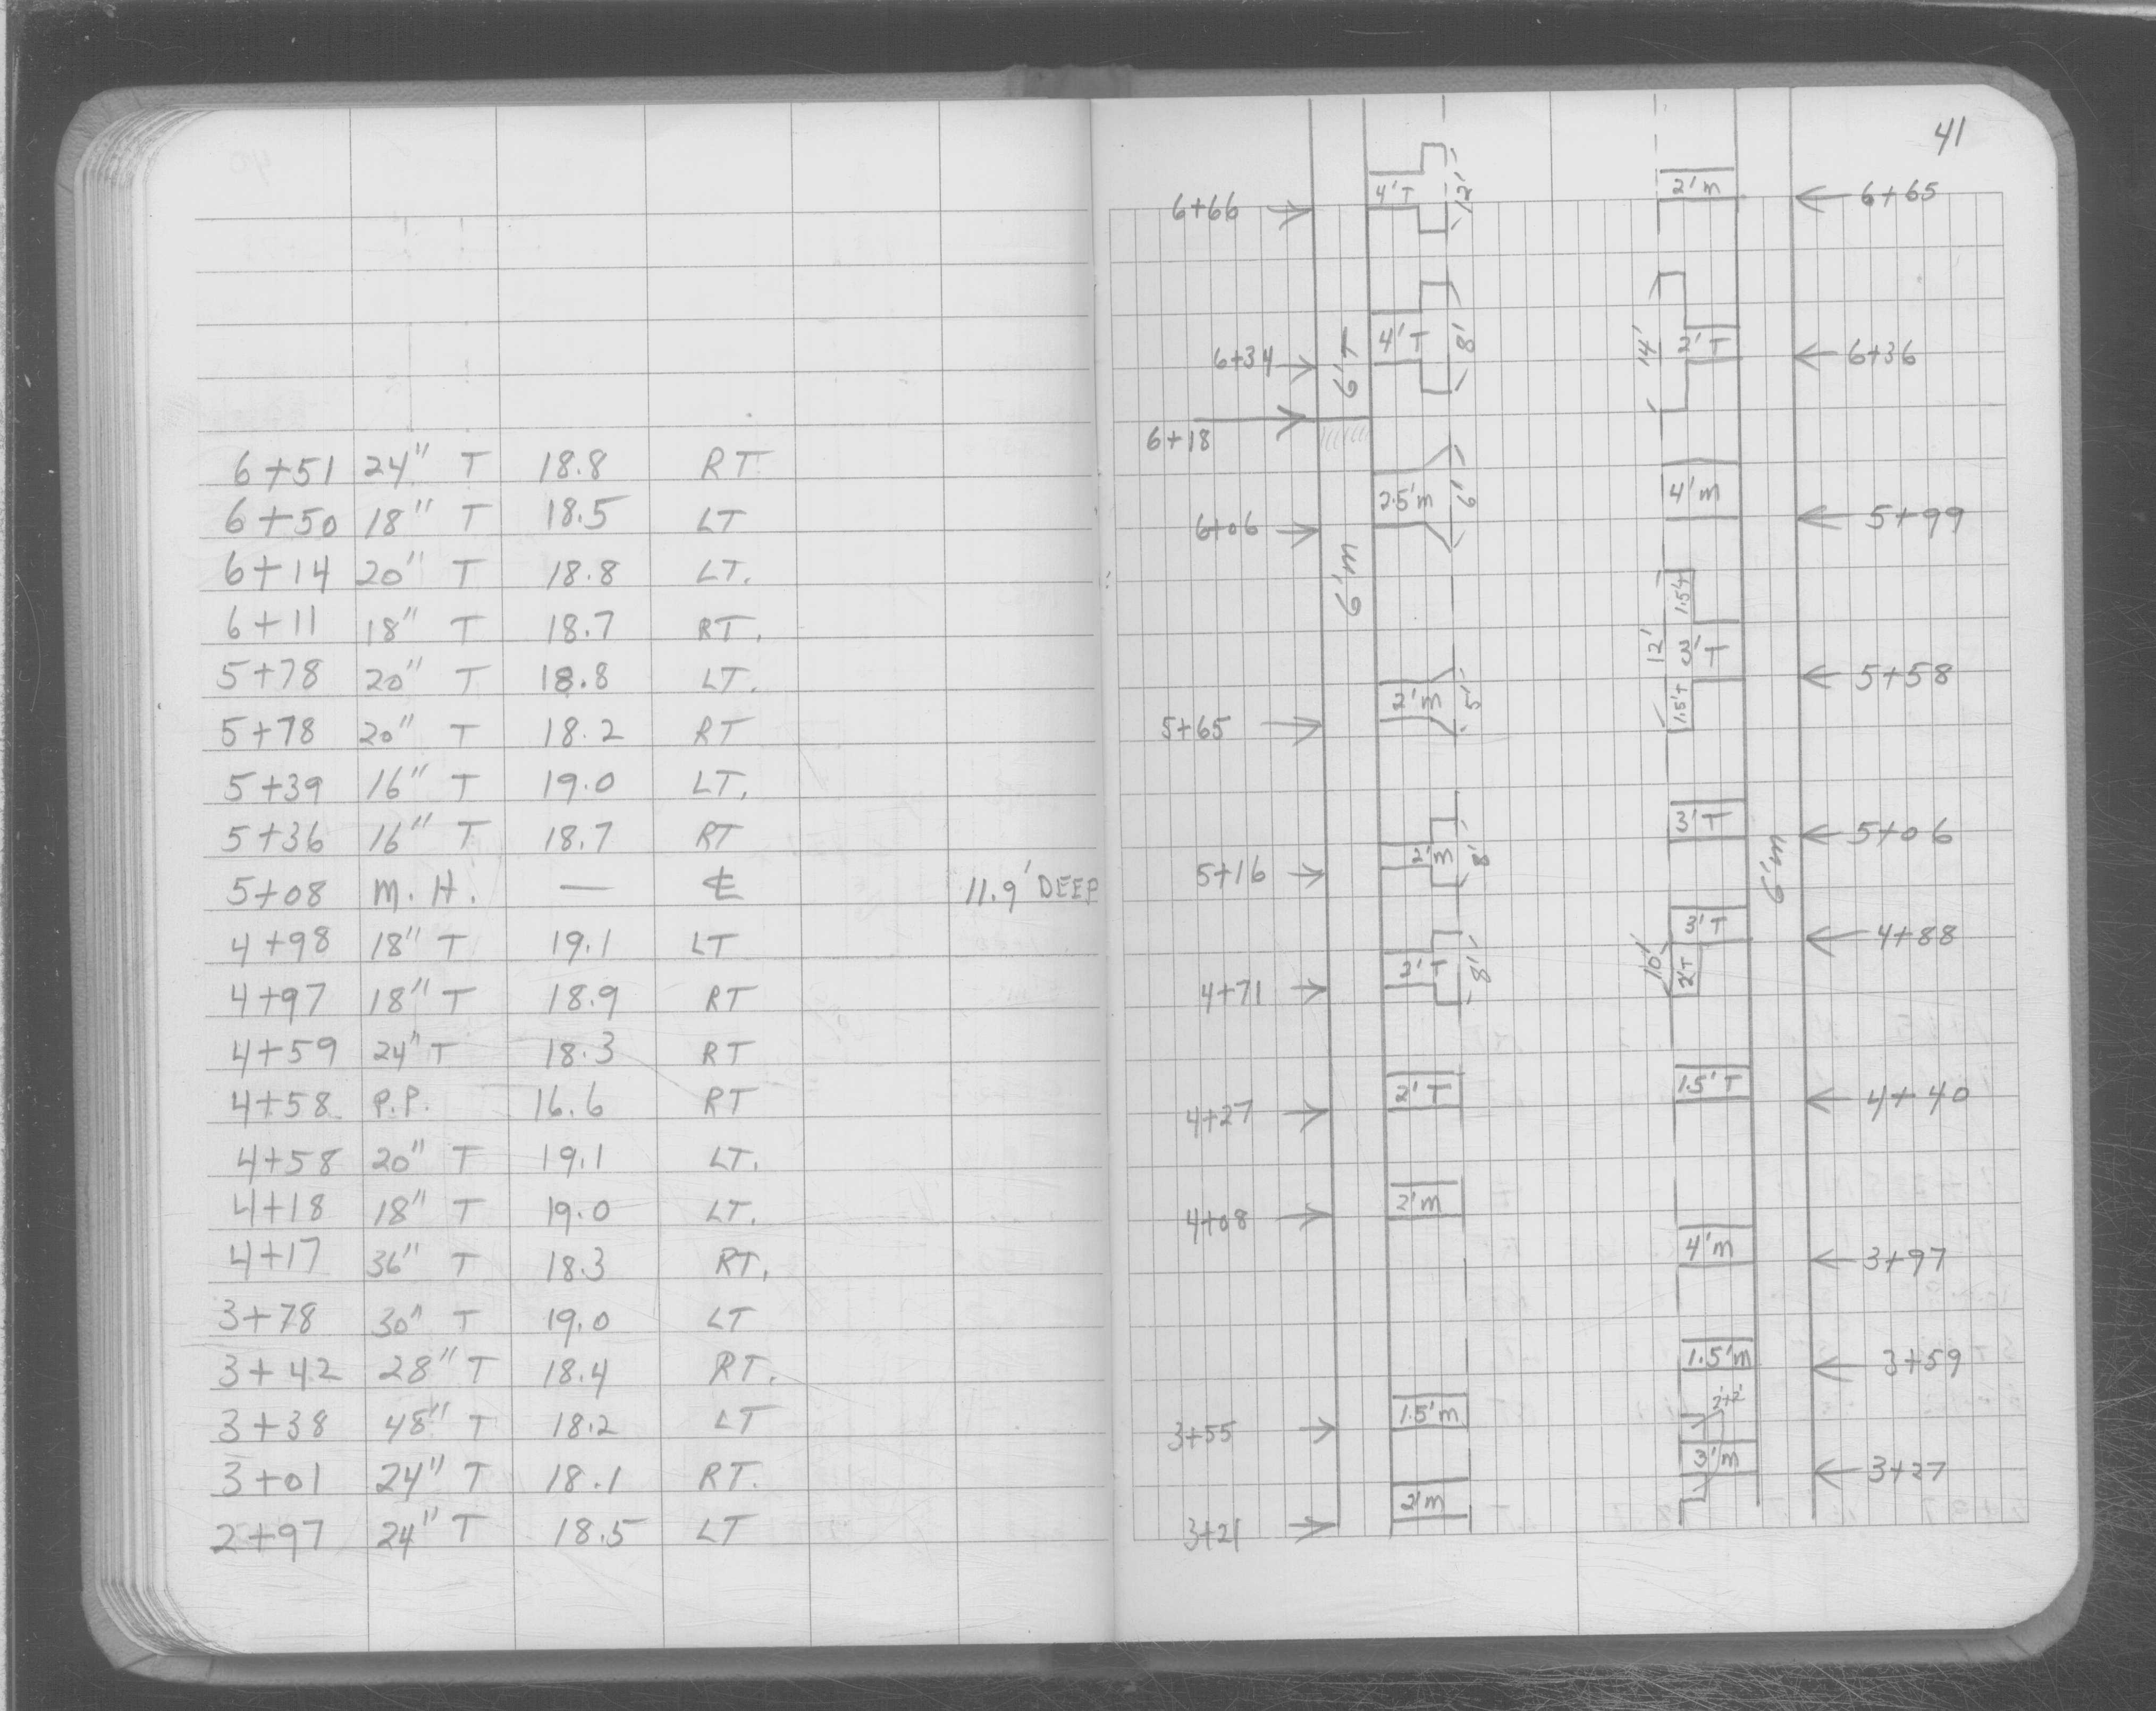 6+51 24" T 18.8 RT
6+50 18" T 18.5 LT
6+14 20" T 18.8 LT.
6+11 18" T 18.7 RT.
5+78 20" T 18.8 LT.
5+78 20" T 18.2 RT
5+39 16" T 19.0 LT.
5+36 16" T 18.7 RT
5+08 M.H. — ℄ 11.9' DEEP
4+98 18" T 19.1 LT
4+97 18" T 18.9 RT
4+59 24" T 18.3 RT
4+58 P.P. 16.6 RT
4+58 20" T 19.1 LT.
4+18 18" T 19.0 LT.
4+17 36" T 18.3 RT.
3+78 30" T 19.0 LT
3+42 28" T 18.4 RT.
3+38 48" T 18.2 LT
3+01 24" T 18.1 RT.
2+97 24" T 18.5 LT
41
6+66 4'T 12' 2'm 6+65
6+34 6'T 4'T 8' 14' 2'T 6+36
6+18
6+06 2.5'm 6' 4'm 5+99
6'm
1.5'T
12' 3'T 5+58
5+65 2'm 5' 1.5'T
3'T 5+06
5+16 2'm 8' 6'm
3'T 4+88
4+71 2'T 8' 10' 2'T
4+27 2'T 1.5'T 4+40
4+08 2'm
4'm 3+97
1.5'm 3+59
3+55 1.5'm 2'+2'
3'm 3+27
3+21 2'm